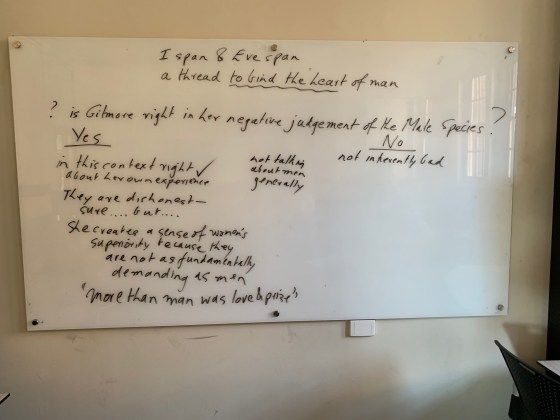 I span & Eve span
a thread to bind the heart of man
? is Gilmore right in her negative judgement of the Male Species ?
Yes
in this context right ✓
about her own experience
They are dishonest—
sure.... but....
She creates a sense of women's
superiority because they
are not as fundamentally
demanding as men
'more than man was love & prize's
not talking
about men
generally
No
not inherently bad